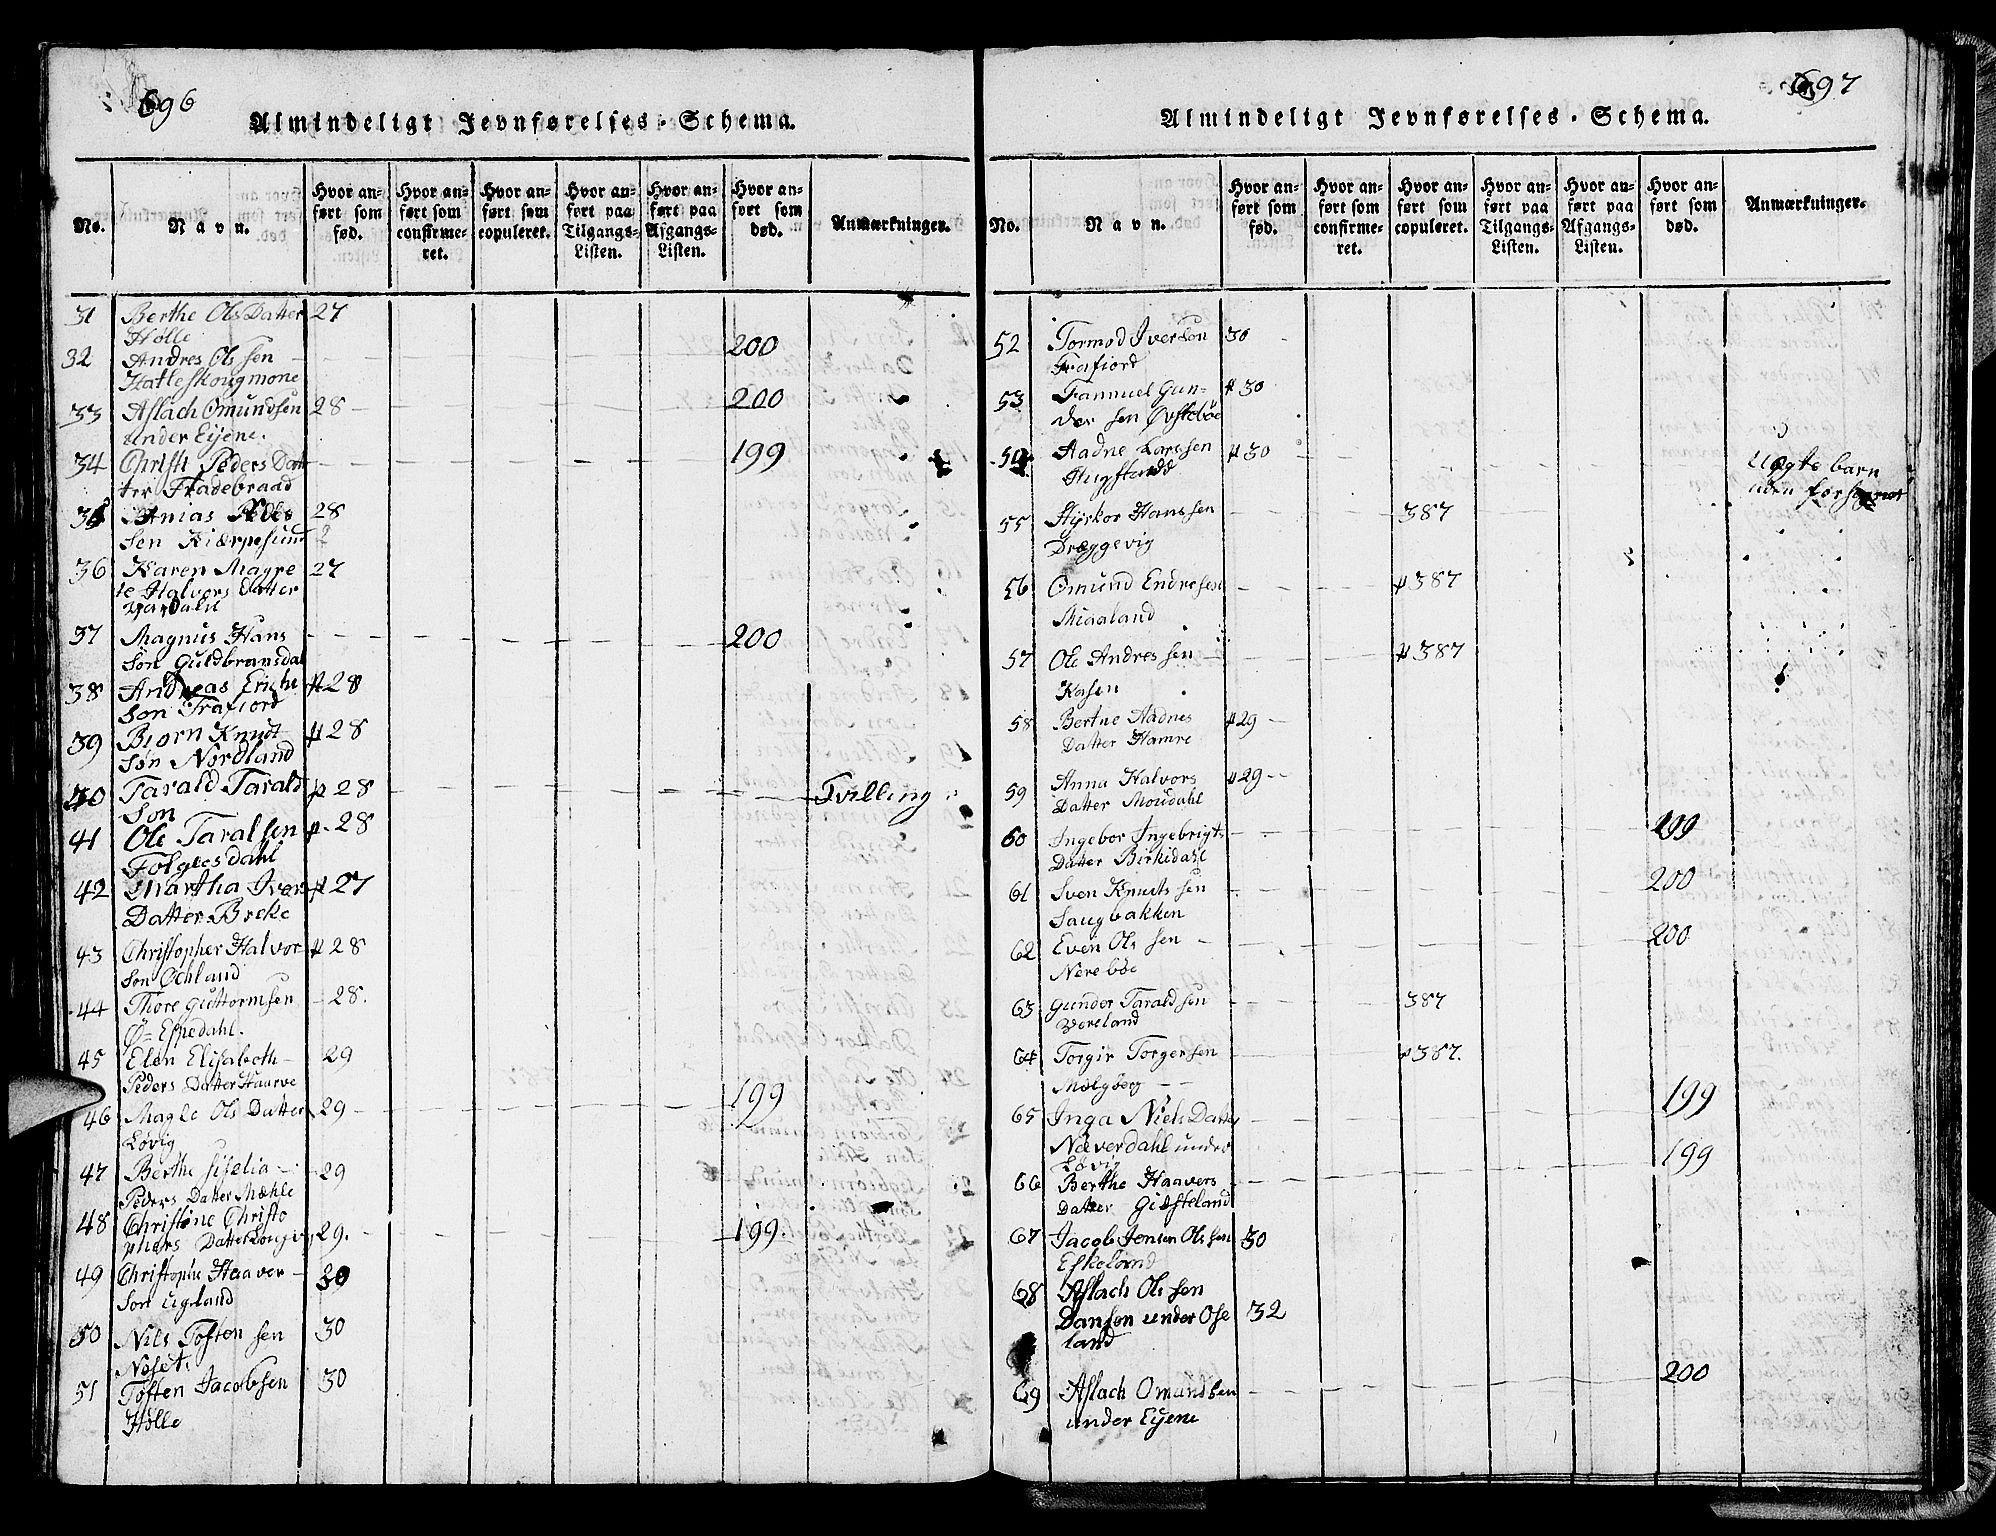 696
Almindeligt Jevnførelses-Schema.
No.
Navn.
Hvor anført som fød.
Hvor anført som confirmeret.
Hvor anført som copuleret.
Hvor anført paa Tilgangs-Listen.
Hvor anført paa Afgangs-Listen.
Hvor anført som død.
Anmærkninger.
31 Berthe Ols Datter 27
Hølle
32 Andres Ols sen 200
Hatleskougmone
33 Aslach Omundsen 28 200
under Eyene.
34 Christi Peders Dat 199
ter Fladebraad
35 Anias Peder 28
sen Kiærpesund
36 Karen Magre 27
te Halvors Datter
37 Magnus Hans 200
Søn Guldbransdal
38 Andreas Erichs # 28
Søn Frafiord
39 Biørn Knudt # 28
Søn Nordland
40 Tarald Tarald # 28 Tvilling
Søn
41 Ole Taralsen # 28
Folgesdahl
42 Martha Iver # 27
Datter Breke
43 Christopher Halvor # 28
Søn Ochland
44 Thore Guttormsen 28.
Ø= Espedahl.
45 Elen Elisabeth 29
Peders Datter Haarve
46 Magle Ols Datter 29 199
Løvig
47 Berthe Siselia 29
Peders Datter Mæhle
48 Christine Christo
phers Datter Lougv 29. 199.
49 Christophe Haaver 30
Søn Eigeland
50 Nils Tosten sen 30
Neseti
51 Tosten Jacobsen 30
Hølle
697
Almindeligt Jevnførelses-Schema.
No.
Navn.
Hvor anført som fød.
Hvor anført som confirmeret.
Hvor anført som copuleret.
Hvor anført paa Tilgangs-Listen.
Hvor anført paa Afgangs-Listen.
Hvor anført som død.
Anmærkninger.
52 Tormod Iversen 30
Frafiord
53 Fannuel Gun= # 30
der sen Øvstebøe
54 Aadne Larssen # 30 Uægte barn
55 Styrkor Hanssen 387
Dræggevig
56 Omund Endresen # 387
Migaland
57 Ole Andres sen # 387
Kasen
58 Berthe Aadnes # 29
Datter Hamre
59 Anna Halvors # 29
Datter Moudahl
60 Ingebor Ingebrigts 199
Datter Birkidahl
61 Sven Knuds sen 200
Saugbakken
62 Even Ols sen 200
Nerebøe
63 Gunder Taraldsen 387
Vereland
64 Torgir Torgersen # 387.
Mølgberg
65 Inga Niels Datter 199
Næverdahl under
Løvig
66 Berthe Haavers 199
Datter Gilsteland
67 Jacob Jensen Ols sen 30
Eskeland
68 Aslach Ols sen
Danson under Ose 32
land
69 Aslach Omundsen 200
under Eyene